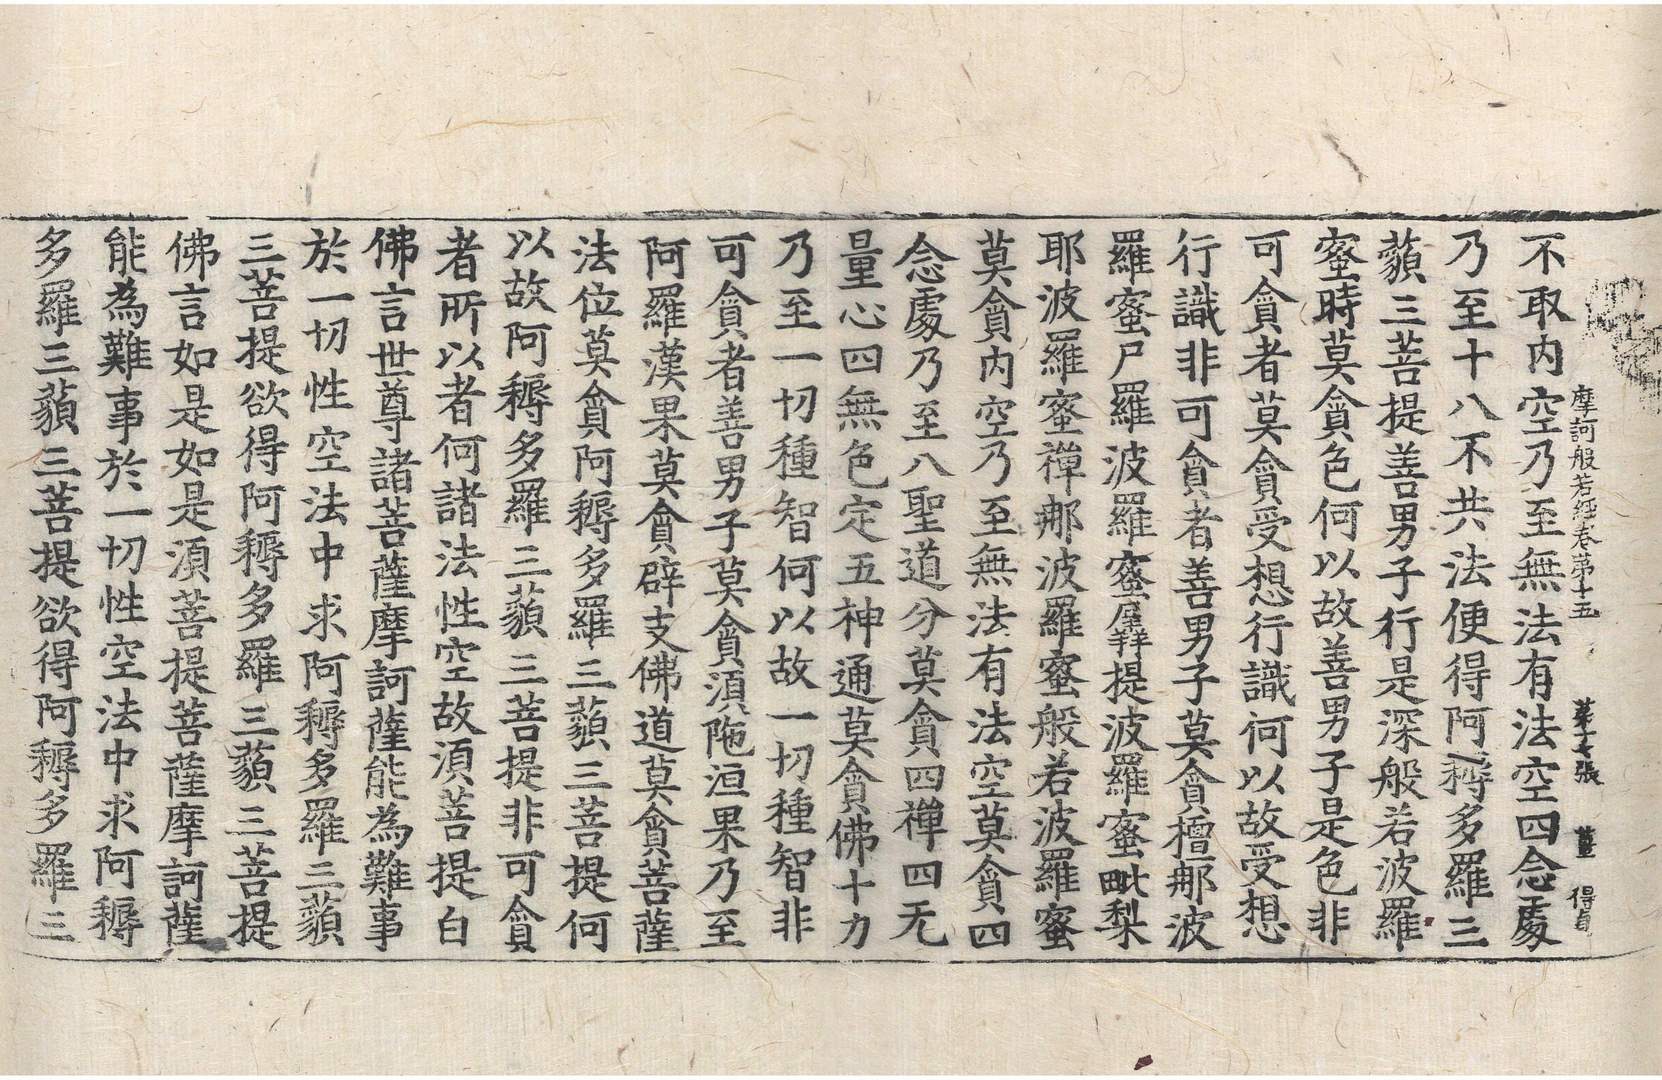 摩訶般若經卷第十五 張 得
不取內空乃至無法有法空四念處
乃至十八不共法便得阿耨多羅三
藐三菩提善男子行是深般若波羅
蜜時莫貪色何以故善男子是色非
可貪者莫貪受想行識何以故受想
行識非可貪者善男子莫貪檀那波
羅蜜尸羅波羅蜜羼提波羅蜜毗梨
耶波羅蜜禪那波羅蜜般若波羅蜜
莫貪內空乃至無法有法空莫貪四
念處乃至八聖道分莫貪四禪四无
量心四無色定五神通莫貪佛十力
乃至一切種智何以故一切種智非
可貪者善男子莫貪須陁洹果乃至
阿羅漢果莫貪辟支佛道莫貪菩薩
法位莫貪阿耨多羅三藐三菩提何
以故阿耨多羅三藐三菩提非可貪
者所以者何諸法性空故須菩提白
佛言世尊諸菩薩摩訶薩能為難事
於一切性空法中求阿耨多羅三藐
三菩提欲得阿耨多羅三藐三菩提
佛言如是如是須菩提菩薩摩訶薩
能為難事於一切性空法中求阿耨
多羅三藐三菩提欲得阿耨多羅三